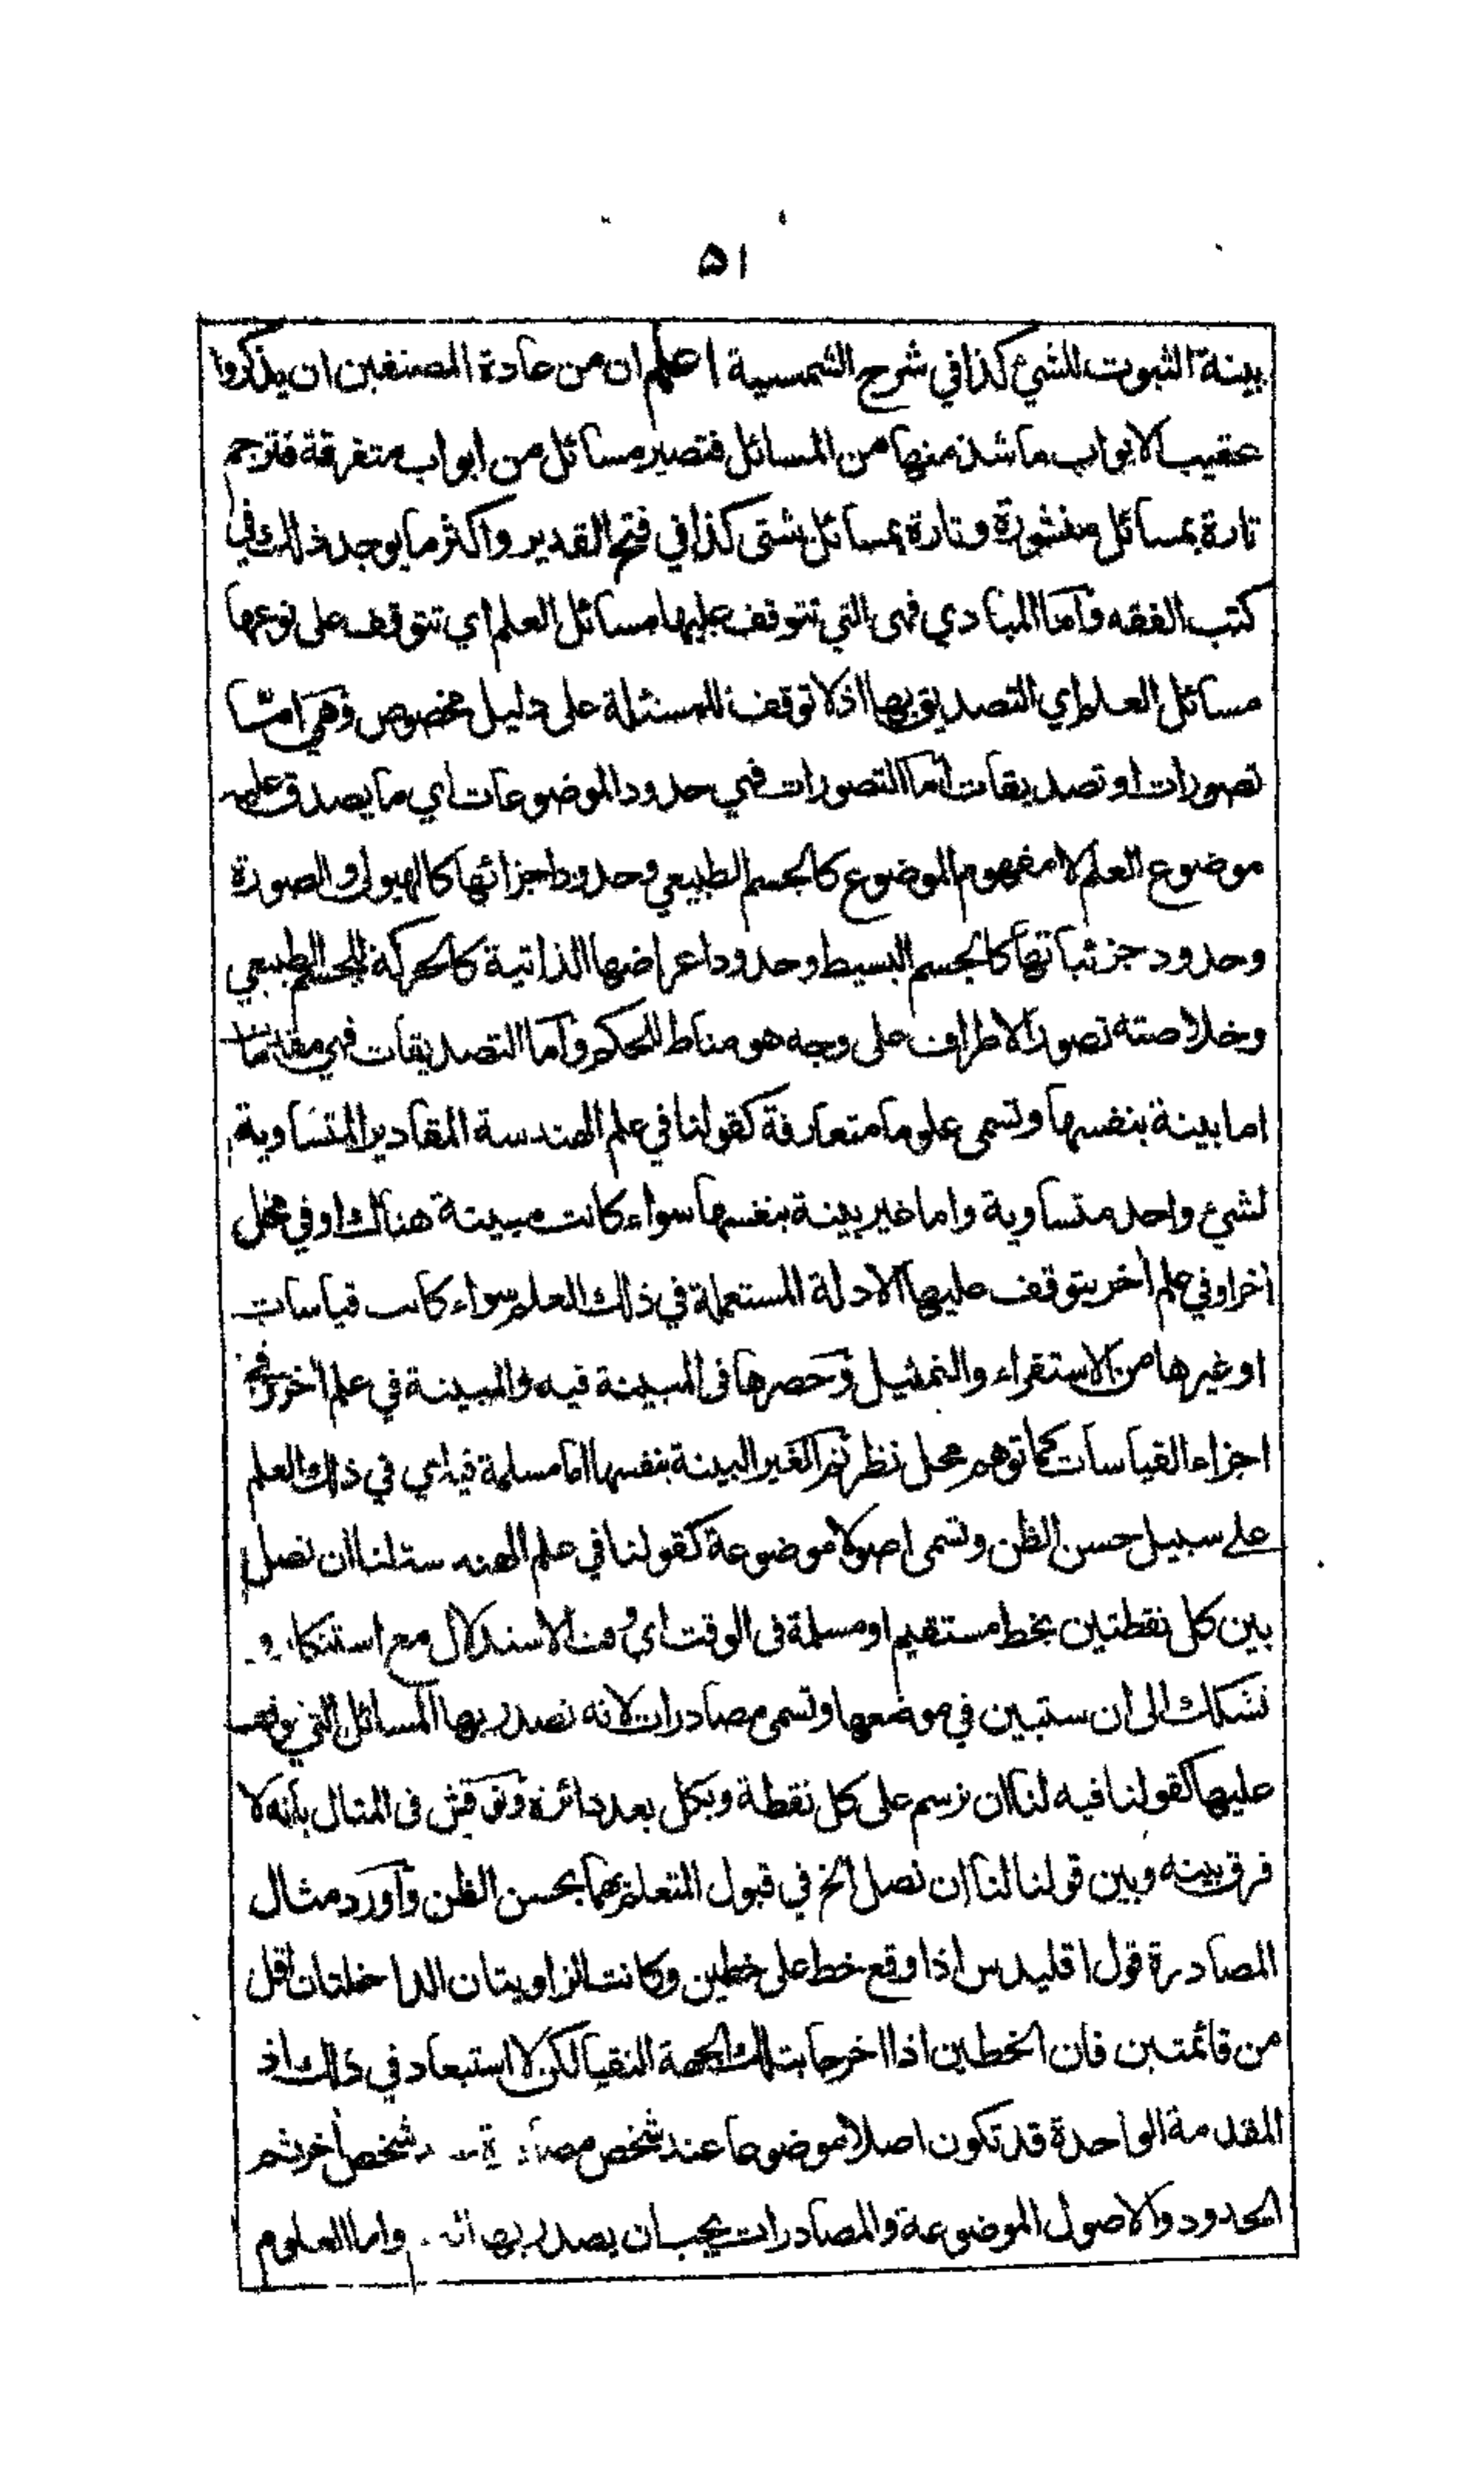 ۵۱
بينة الثبوت للشيء كذا في شرح الشمسية اعلم ان من عادة المصنفين ان يذكروا
عقيب الابواب ما شذ منها من المسائل فتصير مسائل من ابواب متفرقة فتترجم
تارة بمسائل منثورة وتارة بمسائل شتى كذا في فتح القدير واكثر ما يوجد ذلك في
كتب الفقه وأما المبادي فهى التي تتوقف عليها مسائل العلم اي تتوقف على نوعها
مسائل العلم اي التصديق بها اذ لا توقف للمسئلة على دليل مخصوص وهي امّا
تصورات او تصديقات أما التصورات فهي حدود الموضوعات اي ما يصدق عليه
موضوع العلم لا مفهوم الموضوع كالجسم الطبيعي وحدود اجزائها كالهيولى والصورة
وحدود جزئياتها كالجسم البسيط وحدود اعراضها الذاتية كالحركة للجسم الطبيعي
وخلاصته تصور الاطراف على وجه هو مناط للحكم وأما التصديقات فهي مقدمات
اما بينة بنفسها وتسمى علوما متعارفة كقولنا في علم الهندسة المقادير المتساوية
لشيء واحد متساوية واما غير بينة بنفسها سواء كانت مبينة هناك او في محل
أخر او في علم أخر يتوقف عليها الادلة المستعملة في ذلك العلم سواء كانت قياسات
او غيرها من الاستقراء والتمثيل وحصرها فى المبينة فيه والمبينة في علم أخر وفي
اجزاء القياسات كما توهم محل نظر ثم الغير البينة بنفسها اما مسلمة فيه اي في ذلك العلم
على سبيل حسن الظن وتسمى اصولا موضوعة كقولنا في علم الهندسة لنا ان نصل
بين كل نقطتين بخط مستقيم او مسلمة فى الوقت اي وقت الاستدلال مع استنكار و
تشكك الى ان ستبين في موضعها وتسمى مصادرات لانه تصدر بها المسائل التي تتوقف
عليها كقولنا فيه لنا ان نرسم على كل نقطة وبكل بعد دائرة ونوقش فى المثال بأنه لا
فرق بينه وبين قولنا لنا ان نصل الخ في قبول المتعلم بهما بحسن الظن وأورد مثال
المصادرة قول اقليدس اذا وقع خط على خطين وكانت الزاويتان الداخلتان اقل
من قائمتين فان الخطين اذا اخرجا بتلك الجهة التقيا لكن لا استبعاد في ذلك اذ
المقدمة الواحدة قد تكون اصلا موضوعا عند شخص شخص أخر ثم
الحدود والاصول الموضوعة والمصادرات يجب ان يصدر بها واما العلوم